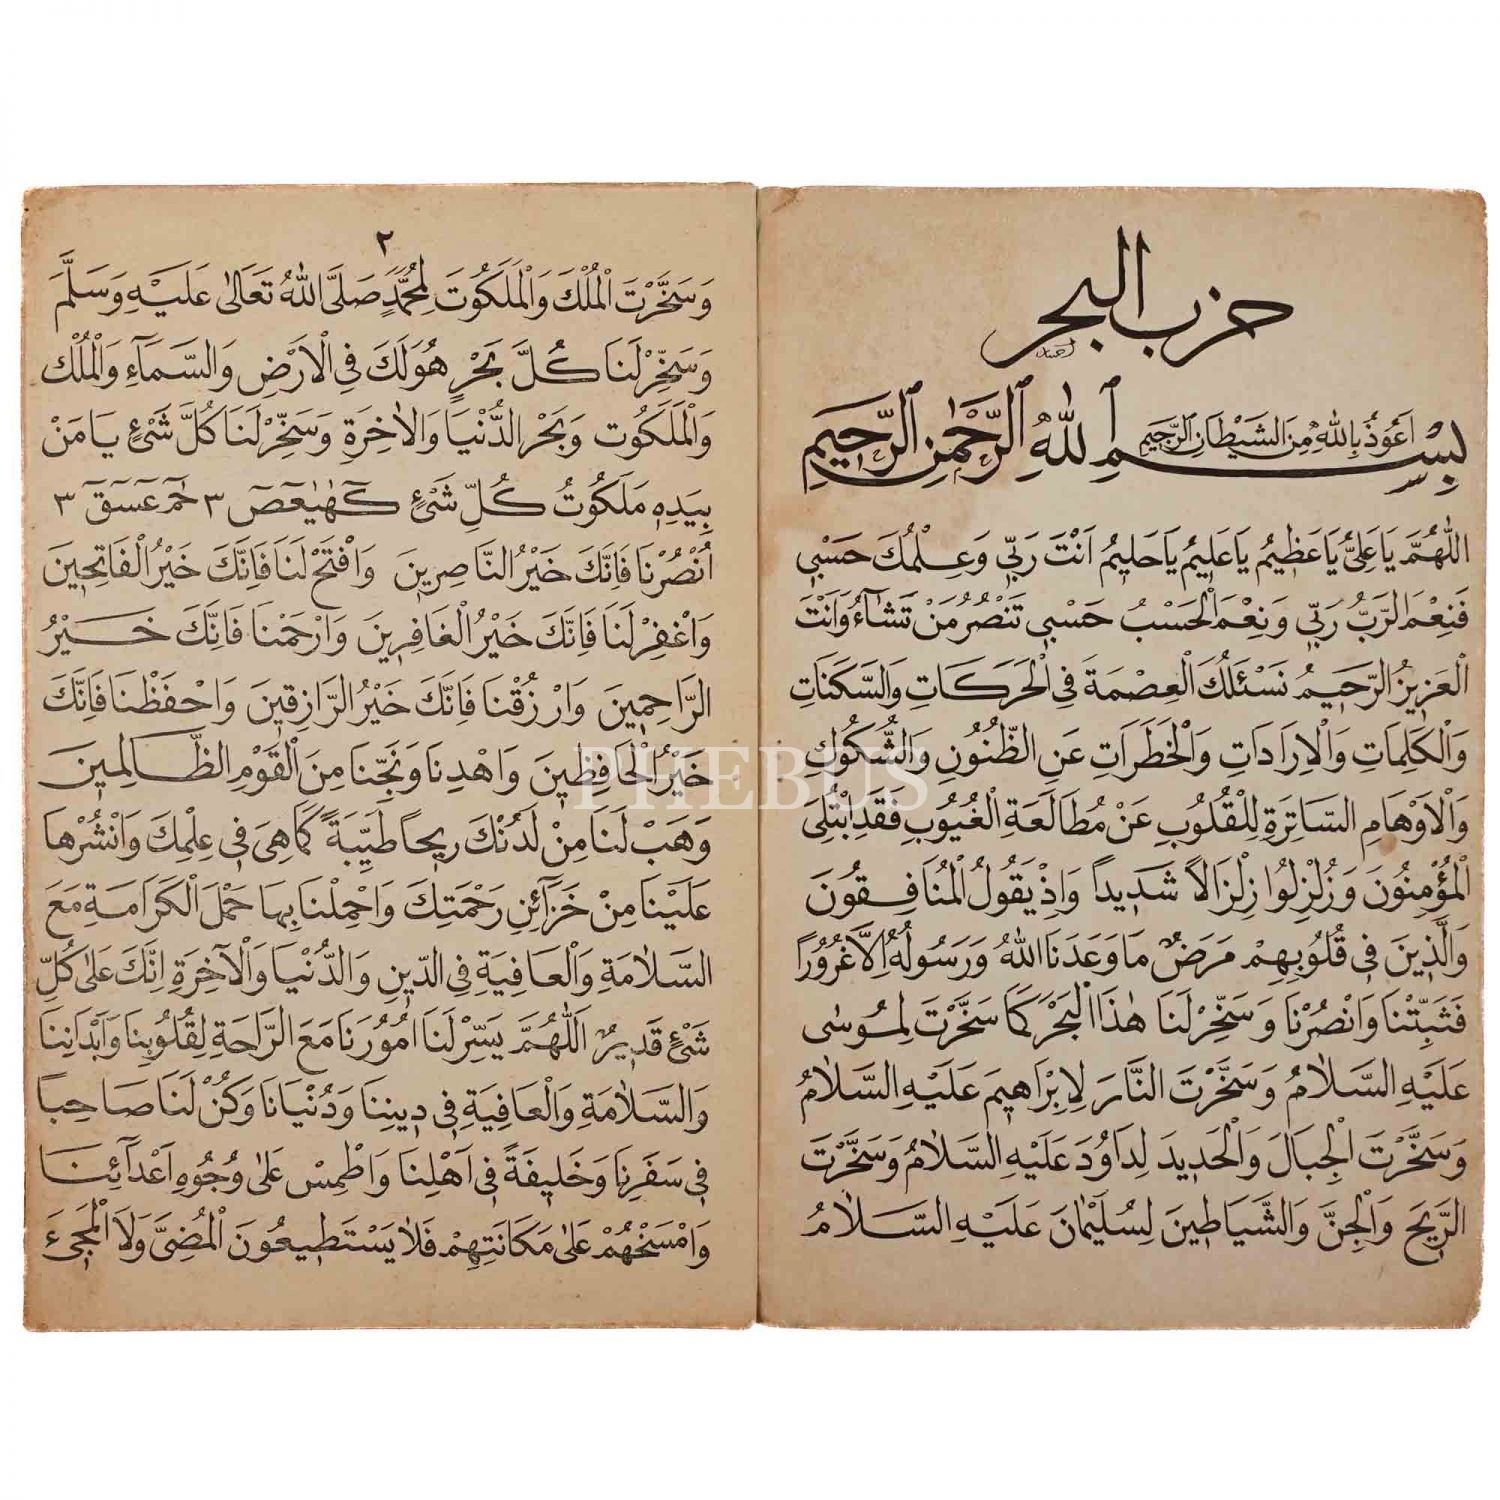 حزب البحر
اَعُوذُ بِاللّٰهِ مِنَ الشَّيْطَانِ الرَّجِيمِ
بِسْمِ اللّٰهِ الرَّحْمٰنِ الرَّحِيمِ
اَللّٰهُمَّ يَا عَلِىُّ يَا عَظِيمُ يَا عَلِيمُ يَا حَلِيمُ اَنْتَ رَبِّى وَعِلْمُكَ حَسْبِى
فَنِعْمَ الرَّبُّ رَبِّى وَنِعْمَ الْحَسْبُ حَسْبِى تَنْصُرُ مَنْ تَشَآءُ وَاَنْتَ
الْعَزِيزُ الرَّحِيمُ نَسْئَلُكَ الْعِصْمَةَ فِى الْحَرَكَاتِ وَالسَّكَنَاتِ
وَالْكَلِمَاتِ وَالْاِرَادَاتِ وَالْخَطَرَاتِ عَنِ الظُّنُونِ وَالشُّكُوكِ
وَالْاَوْهَامِ السَّاتِرَةِ لِلْقُلُوبِ عَنْ مُطَالَعَةِ الْغُيُوبِ فَقَدِ ابْتُلِىَ
الْمُؤْمِنُونَ وَزُلْزِلُوا زِلْزَالًا شَدِيداً وَاِذْ يَقُولُ الْمُنَافِقُونَ
وَالَّذِينَ فِى قُلُوبِهِمْ مَرَضٌ مَا وَعَدَنَا اللّٰهُ وَرَسُولُهُ اِلَّا غُرُورًا
فَثَبِّتْنَا وَانْصُرْنَا وَسَخِّرْ لَنَا هٰذَا الْبَحْرَ كَمَا سَخَّرْتَ لِمُوسٰى
عَلَيْهِ السَّلَامُ وَسَخَّرْتَ النَّارَ لِاِبْرَاهِيمَ عَلَيْهِ السَّلَامُ
وَسَخَّرْتَ الْجِبَالَ وَالْحَدِيدَ لِدَاوُدَ عَلَيْهِ السَّلَامُ وَسَخَّرْتَ
الرِّيحَ وَالْجِنَّ وَالشَّيَاطِينَ لِسُلَيْمٰانَ عَلَيْهِ السَّلَامُ
٢
وَسَخَّرْتَ الْمُلْكَ وَالْمَلَكُوتَ لِمُحَمَّدٍ صَلَّى اللّٰهُ تَعَالٰى عَلَيْهِ وَسَلَّمَ
وَسَخِّرْ لَنَا كُلَّ بَحْرٍ هُوَ لَكَ فِى الْاَرْضِ وَالسَّمَآءِ وَالْمُلْكِ
وَالْمَلَكُوتِ وَبَحْرَ الدُّنْيَا وَالْاٰخِرَةِ وَسَخِّرْ لَنَا كُلَّ شَىْءٍ يَا مَنْ
بِيَدِهِ مَلَكُوتُ كُلِّ شَىْءٍ كٓهٰيٰعٓصٓ ٣ حٰمٓ عٓسٓقٓ ٣
اُنْصُرْنَا فَاِنَّكَ خَيْرُ النَّاصِرِينَ وَافْتَحْ لَنَا فَاِنَّكَ خَيْرُ الْفَاتِحِينَ
وَاغْفِرْ لَنَا فَاِنَّكَ خَيْرُ الْغَافِرِينَ وَارْحَمْنَا فَاِنَّكَ خَيْرُ
الرَّاحِمِينَ وَارْزُقْنَا فَاِنَّكَ خَيْرُ الرَّازِقِينَ وَاحْفَظْنَا فَاِنَّكَ
خَيْرُ الْحَافِظِينَ وَاهْدِنَا وَنَجِّنَا مِنَ الْقَوْمِ الظَّالِمِينَ
وَهَبْ لَنَا مِنْ لَدُنْكَ رِيحًا طَيِّبَةً كَمَا هِىَ فِى عِلْمِكَ وَانْشُرْهَا
عَلَيْنَا مِنْ خَزَآئِنِ رَحْمَتِكَ وَاحْمِلْنَا بِهَا حَمْلَ الْكَرَامَةِ مَعَ
السَّلَامَةِ وَالْعَافِيَةِ فِى الدِّينِ وَالدُّنْيَا وَالْآخِرَةِ اِنَّكَ عَلٰى كُلِّ
شَىْءٍ قَدِيرٌ اَللّٰهُمَّ يَسِّرْ لَنَا اُمُورَنَا مَعَ الرَّاحَةِ لِقُلُوبِنَا وَاَبْدَانِنَا
وَالسَّلَامَةِ وَالْعَافِيَةِ فِى دِينِنَا وَدُنْيَانَا وَكُنْ لَنَا صَاحِبًا
فِى سَفَرِنَا وَخَلِيفَةً فِى اَهْلِنَا وَاطْمِسْ عَلٰى وُجُوهِ اَعْدَآئِنَا
وَامْسَخْهُمْ عَلٰى مَكَانَتِهِمْ فَلَا يَسْتَطِيعُونَ الْمُضِىَّ وَلَا الْمَجِىءَ
PHEBUS